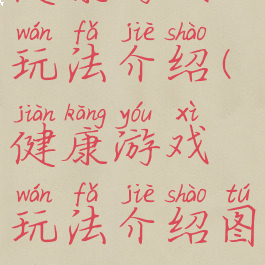 wán fǎ jiè shào
玩法介绍(
jiàn kāng yóu xì
健康游戏
wán fǎ jiè shào tú
玩法介绍图